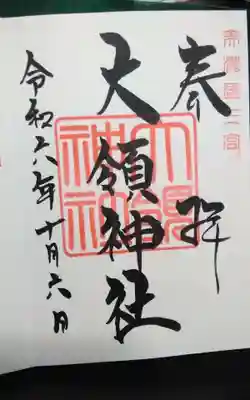 美濃國三宮
奉拝
大領神社
大領神社
令和六年十月六日